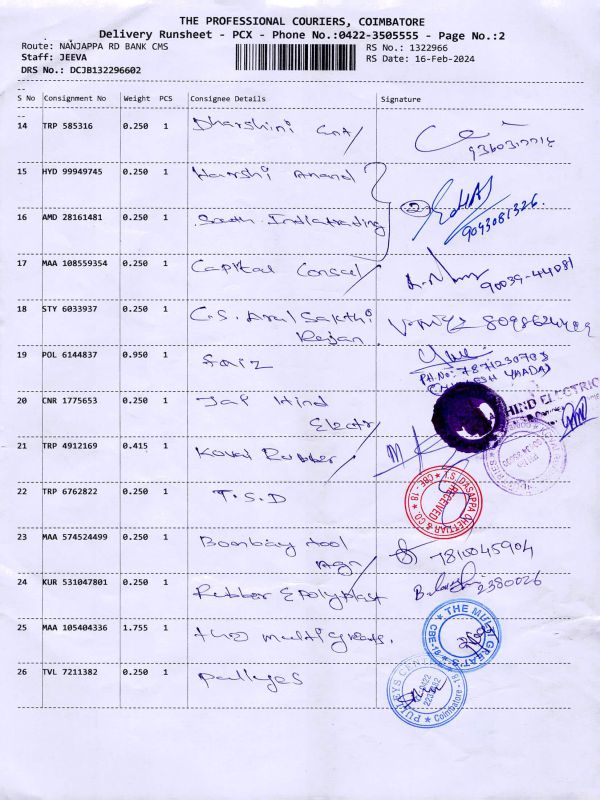 THE PROFESSIONAL COURIERS, COIMBATORE
Delivery Runsheet - PCX - Phone No.:0422-3505555 - Page No.:2
Route: NANJAPPA RD BANK CMS
RS No.: 1322966
Staff: JEEVA
RS Date: 16-Feb-2024
DRS No.: DCJB132296602
S No Consignment No Weight PCS Consignee Details Signature
14 TRP 585316 0.250 1 Dharshini
15 HYD 99949745 0.250 1 Harshi Anand
16 AMD 28161481 0.250 1 South Indiatrading
2
9043081326.
17 MAA 108559354 0.250 1 Capital Consel
90039-44081
18 STY 6033937 0.250 1 C.S. Arul Sakthi
Rajan
19 POL 6144837 0.950 1 Faiz
PH.No: 7871230703
20 CNR 1775653 0.250 1 Jai Hind
Electr
HIND ELECTRIC
21 TRP 4912169 0.415 1 Kovai Rubber
22 TRP 6762822 0.250 1 T.S.D
T.S. DASAPPA CHETTIAR & CO.
RECEIVED
CBE - 18
23 MAA 574524499 0.250 1 Bombay tool
Agr
7810045904
24 KUR 531047801 0.250 1 Rubber & Polyplast
2380026
25 MAA 105404336 1.755 1 the multi greats.
THE MULTI GREATS
CBE-18
26 TVL 7211382 0.250 1 pulleys
PULLEYS CENTRE
Coimbatore - 18
0422